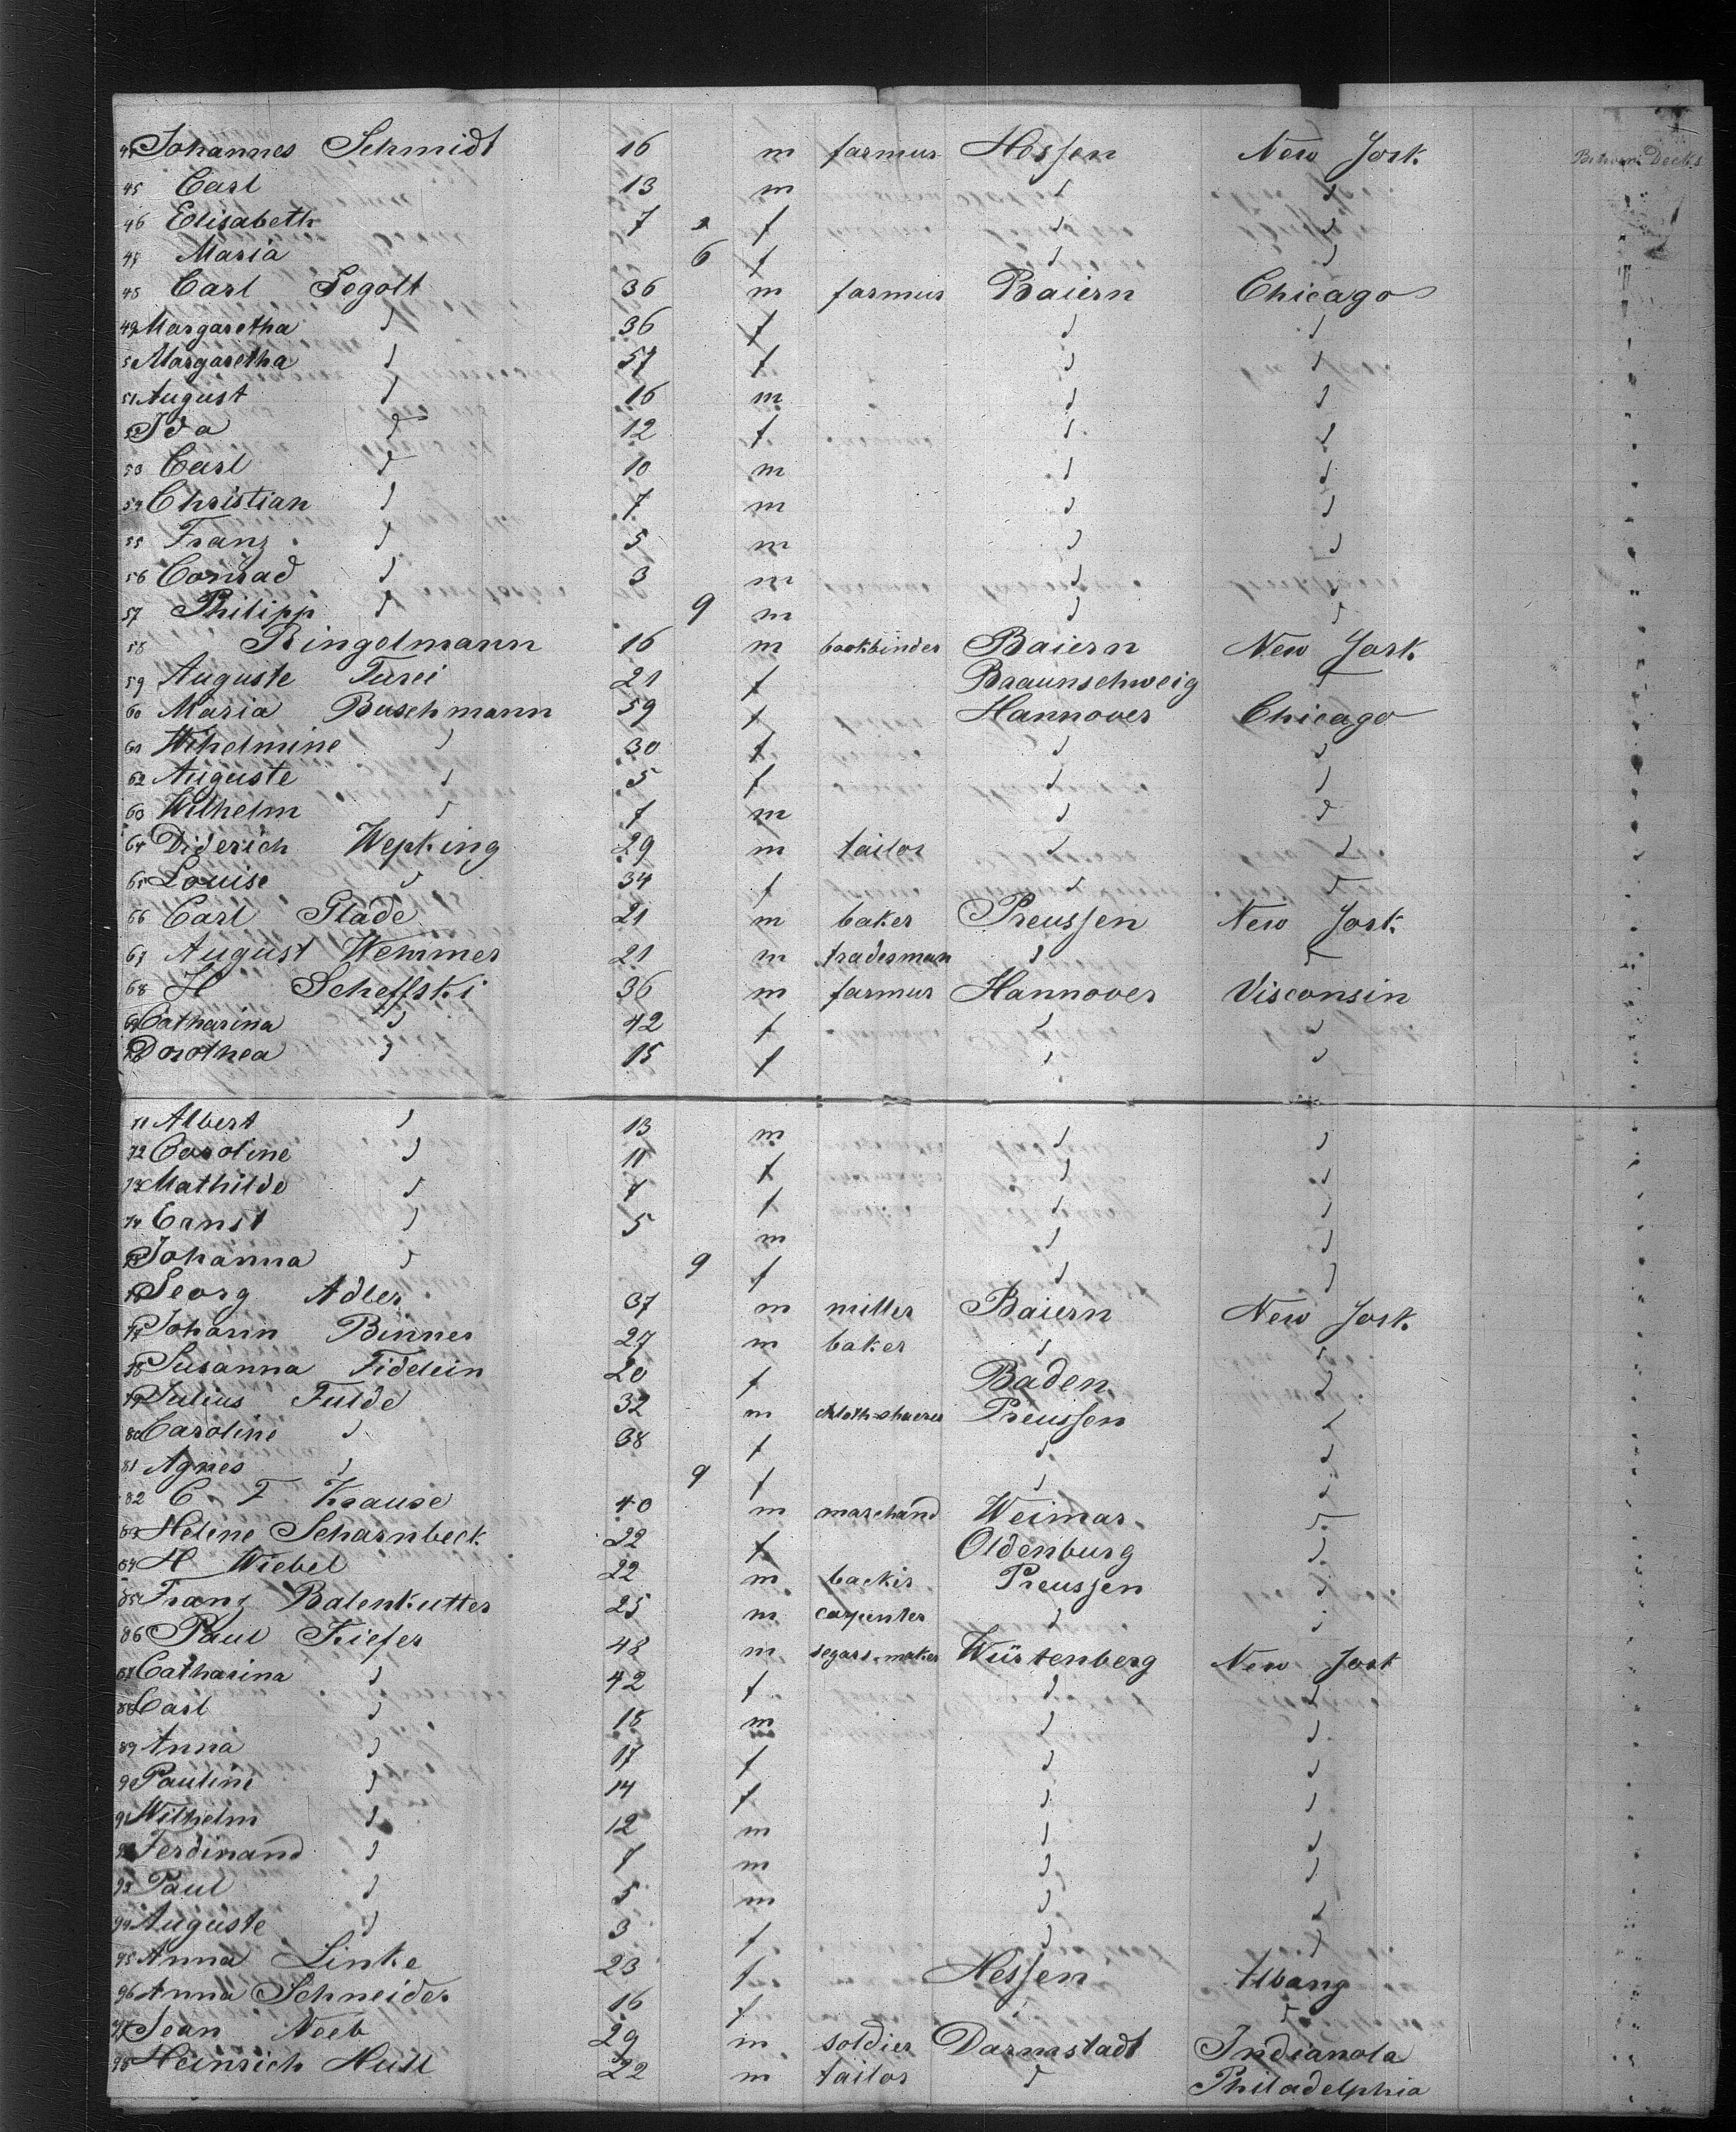 44 Johannes Schmidt 16 m farmer Hessen New York Between Decks
45 Carl 13 m " "
46 Elisabeth 7 f " "
47 Maria 6 f " "
48 Carl 36 m farmer Baiern Chicago
49 Margaretha " 36 f " "
50 Margaretha " 57 f " "
51 August " 16 m " "
52 Ida " 12 f " "
53 Carl " 10 m " "
54 Christian " 7 m " "
55 Franz " 5 m " "
56 Conrad " 3 m " "
57 Philipp " 9 m " "
58 Ringelmann 16 m bookbinder Baiern New York
59 Auguste 21 f Braunschweig "
60 Maria Buschmann 59 f Hannover Chicago
61 Wihelmine " 30 f " "
62 Auguste " 5 f " "
63 Wilhelm " 7 m " "
64 Diderich Wepking 29 m tailor " "
65 Louise " 34 f " "
66 Carl Glade 21 m baker Preussen New York
67 August Wemmer 21 m tradesman " "
68 H Scheffski 36 m farmer Hannover Visconsin
69 Catharina " 42 f " "
70 Dorothea " 15 f " "
71 Albert " 13 m " "
72 Caroline " 11 f " "
73 Mathilde " 7 f " "
74 Ernst " 5 m " "
75 Johanna " 9 f " "
76 Georg Adler 37 m miller Baiern New York
77 Johann Binner 27 m baker " "
78 Susanna Fidelein 20 f Baden "
79 Julius Fulde 32 m Preussen "
80 Caroline " 38 f " "
81 Agnes " 9 f " "
82 C. F. Krause 40 m marchand Weimar "
83 Helene Scharnbeck 22 f Oldenburg "
84 H Wiebel 22 m backer Preussen "
85 Franz Balenkutter 25 m carpenter " "
86 Paul Kiefer 48 m segars-maker Würtenberg New York
87 Catharina " 42 f " "
88 Carl " 18 m " "
89 Anna " 17 f " "
90 Pauline " 14 f " "
91 Wilhelm " 12 m " "
92 Ferdinand " 7 m " "
93 Paul " 5 m " "
94 Auguste " 3 f " "
95 Anna Linke 23 f Hessen Albany
96 Anna Schneider 16 f " "
97 Jean Neeb 29 m soldier Darmstadt Indianola
98 Heinrich Hull 22 m tailor " Philadelphia